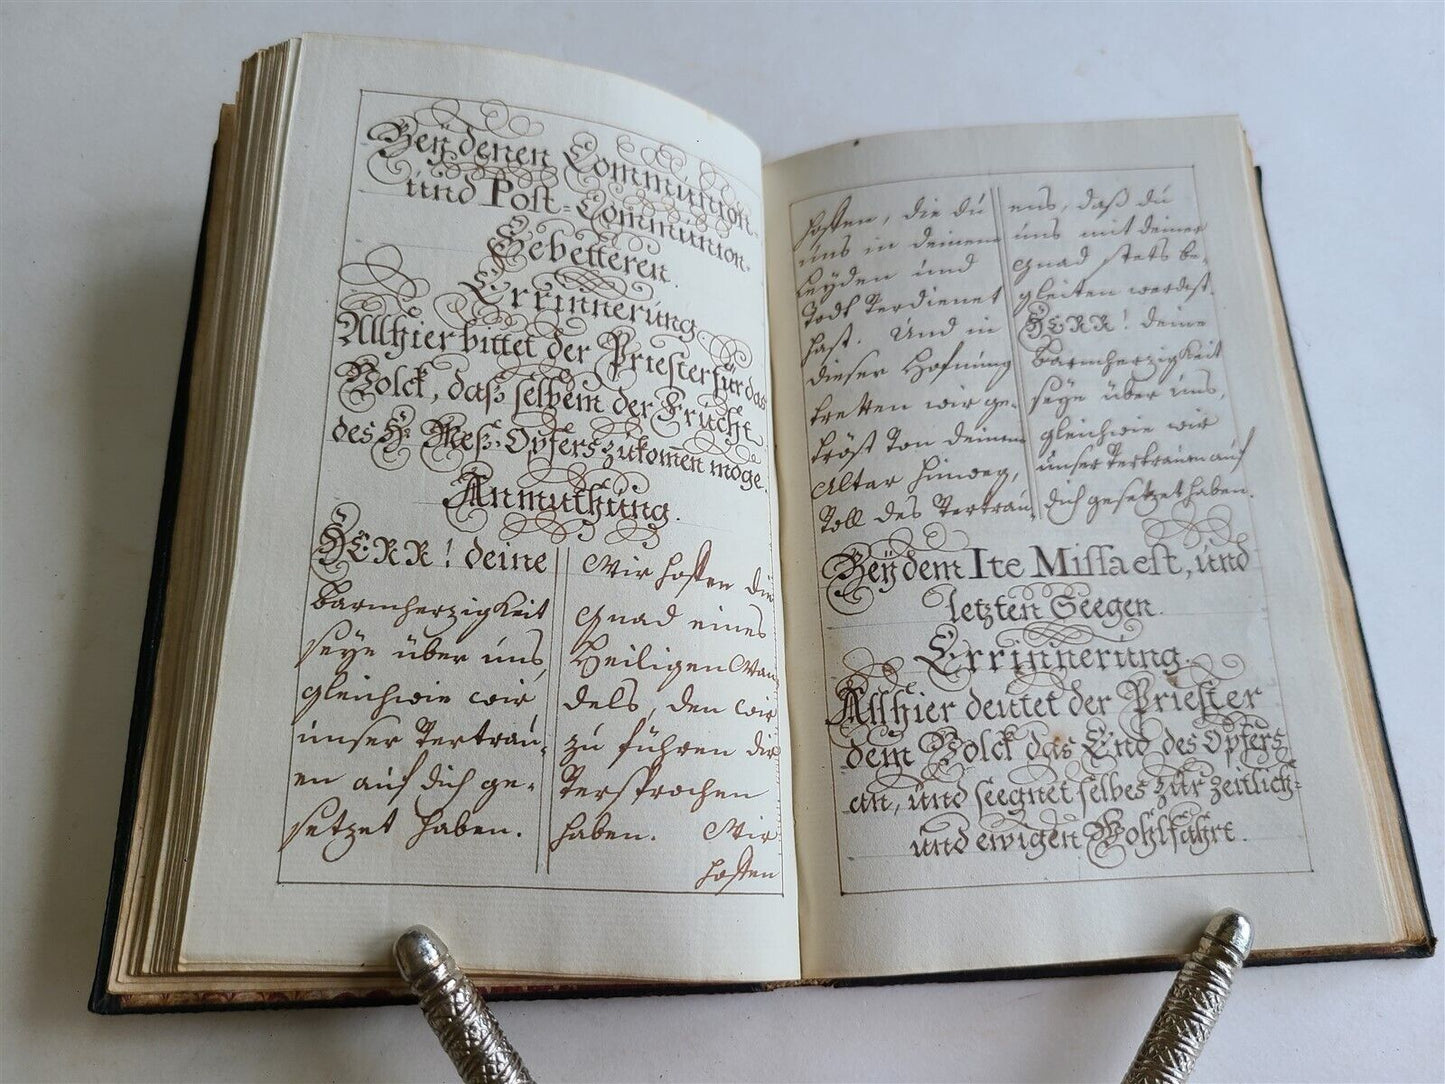 Beÿ denen Communion-
und Post-Communion-
Gebetteren.
Errinnerung.
Allhier bittet der Priester für das
Volck, daß selbem der Frucht
des H: Meß-Opfers zukom̄en möge.
Anmuthung.
HERR! deine
barmherzigkeit
seÿe über uns,
gleichwie wir
unser Vertrau-
en auf dich ge-
setzet haben.
Wir hoffen die
Gnad eines
Heiligen Wan-
dels, den wir
zu führen dir
Versprochen
haben. Wir
hoffen
hoffen, die du
uns in deinem
Leÿden und
Todt Verdienet
hast. Und in
dieser Hofnung
tretten wir ge-
tröst Von deinem
Altar hinweg,
Voll des Vertrau-
ens, daß du
uns mit deiner
Gnad stets be-
gleiten werdest.
HERR! deine
barmherzigkeit
seÿe über uns,
gleichwie wir
unser Vertrauen auf
dich gesetzet haben.
Beÿ dem Ite Missa est, und
letzten Seegen.
Errinnerung.
Allhier deutet der Priester
dem Volck das End des Opfers
an, und seegnet selbes zur zeitlich-
und ewigen Wohlfahrt.